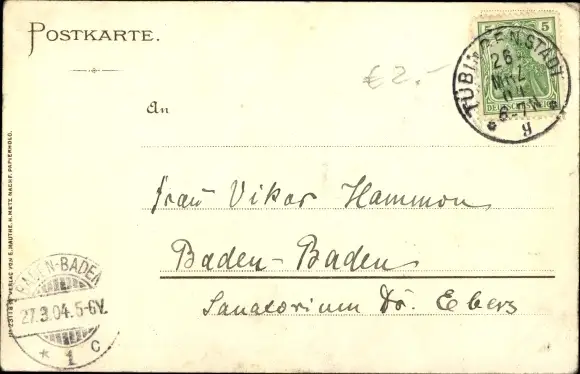 POSTKARTE.
€ 2.-
5 5
TÜBINGEN STADT
26
MRZ
04
6-7N
* g *
An
Frau Vikar Hammon
Baden-Baden
Sanatorium Dr. Ebers
BADEN-BADEN
27.3.04.5-6V.
* 1 c
VERLAG VON E. HAUTHE, H. METZ NACHF. PAPIERHDLG.